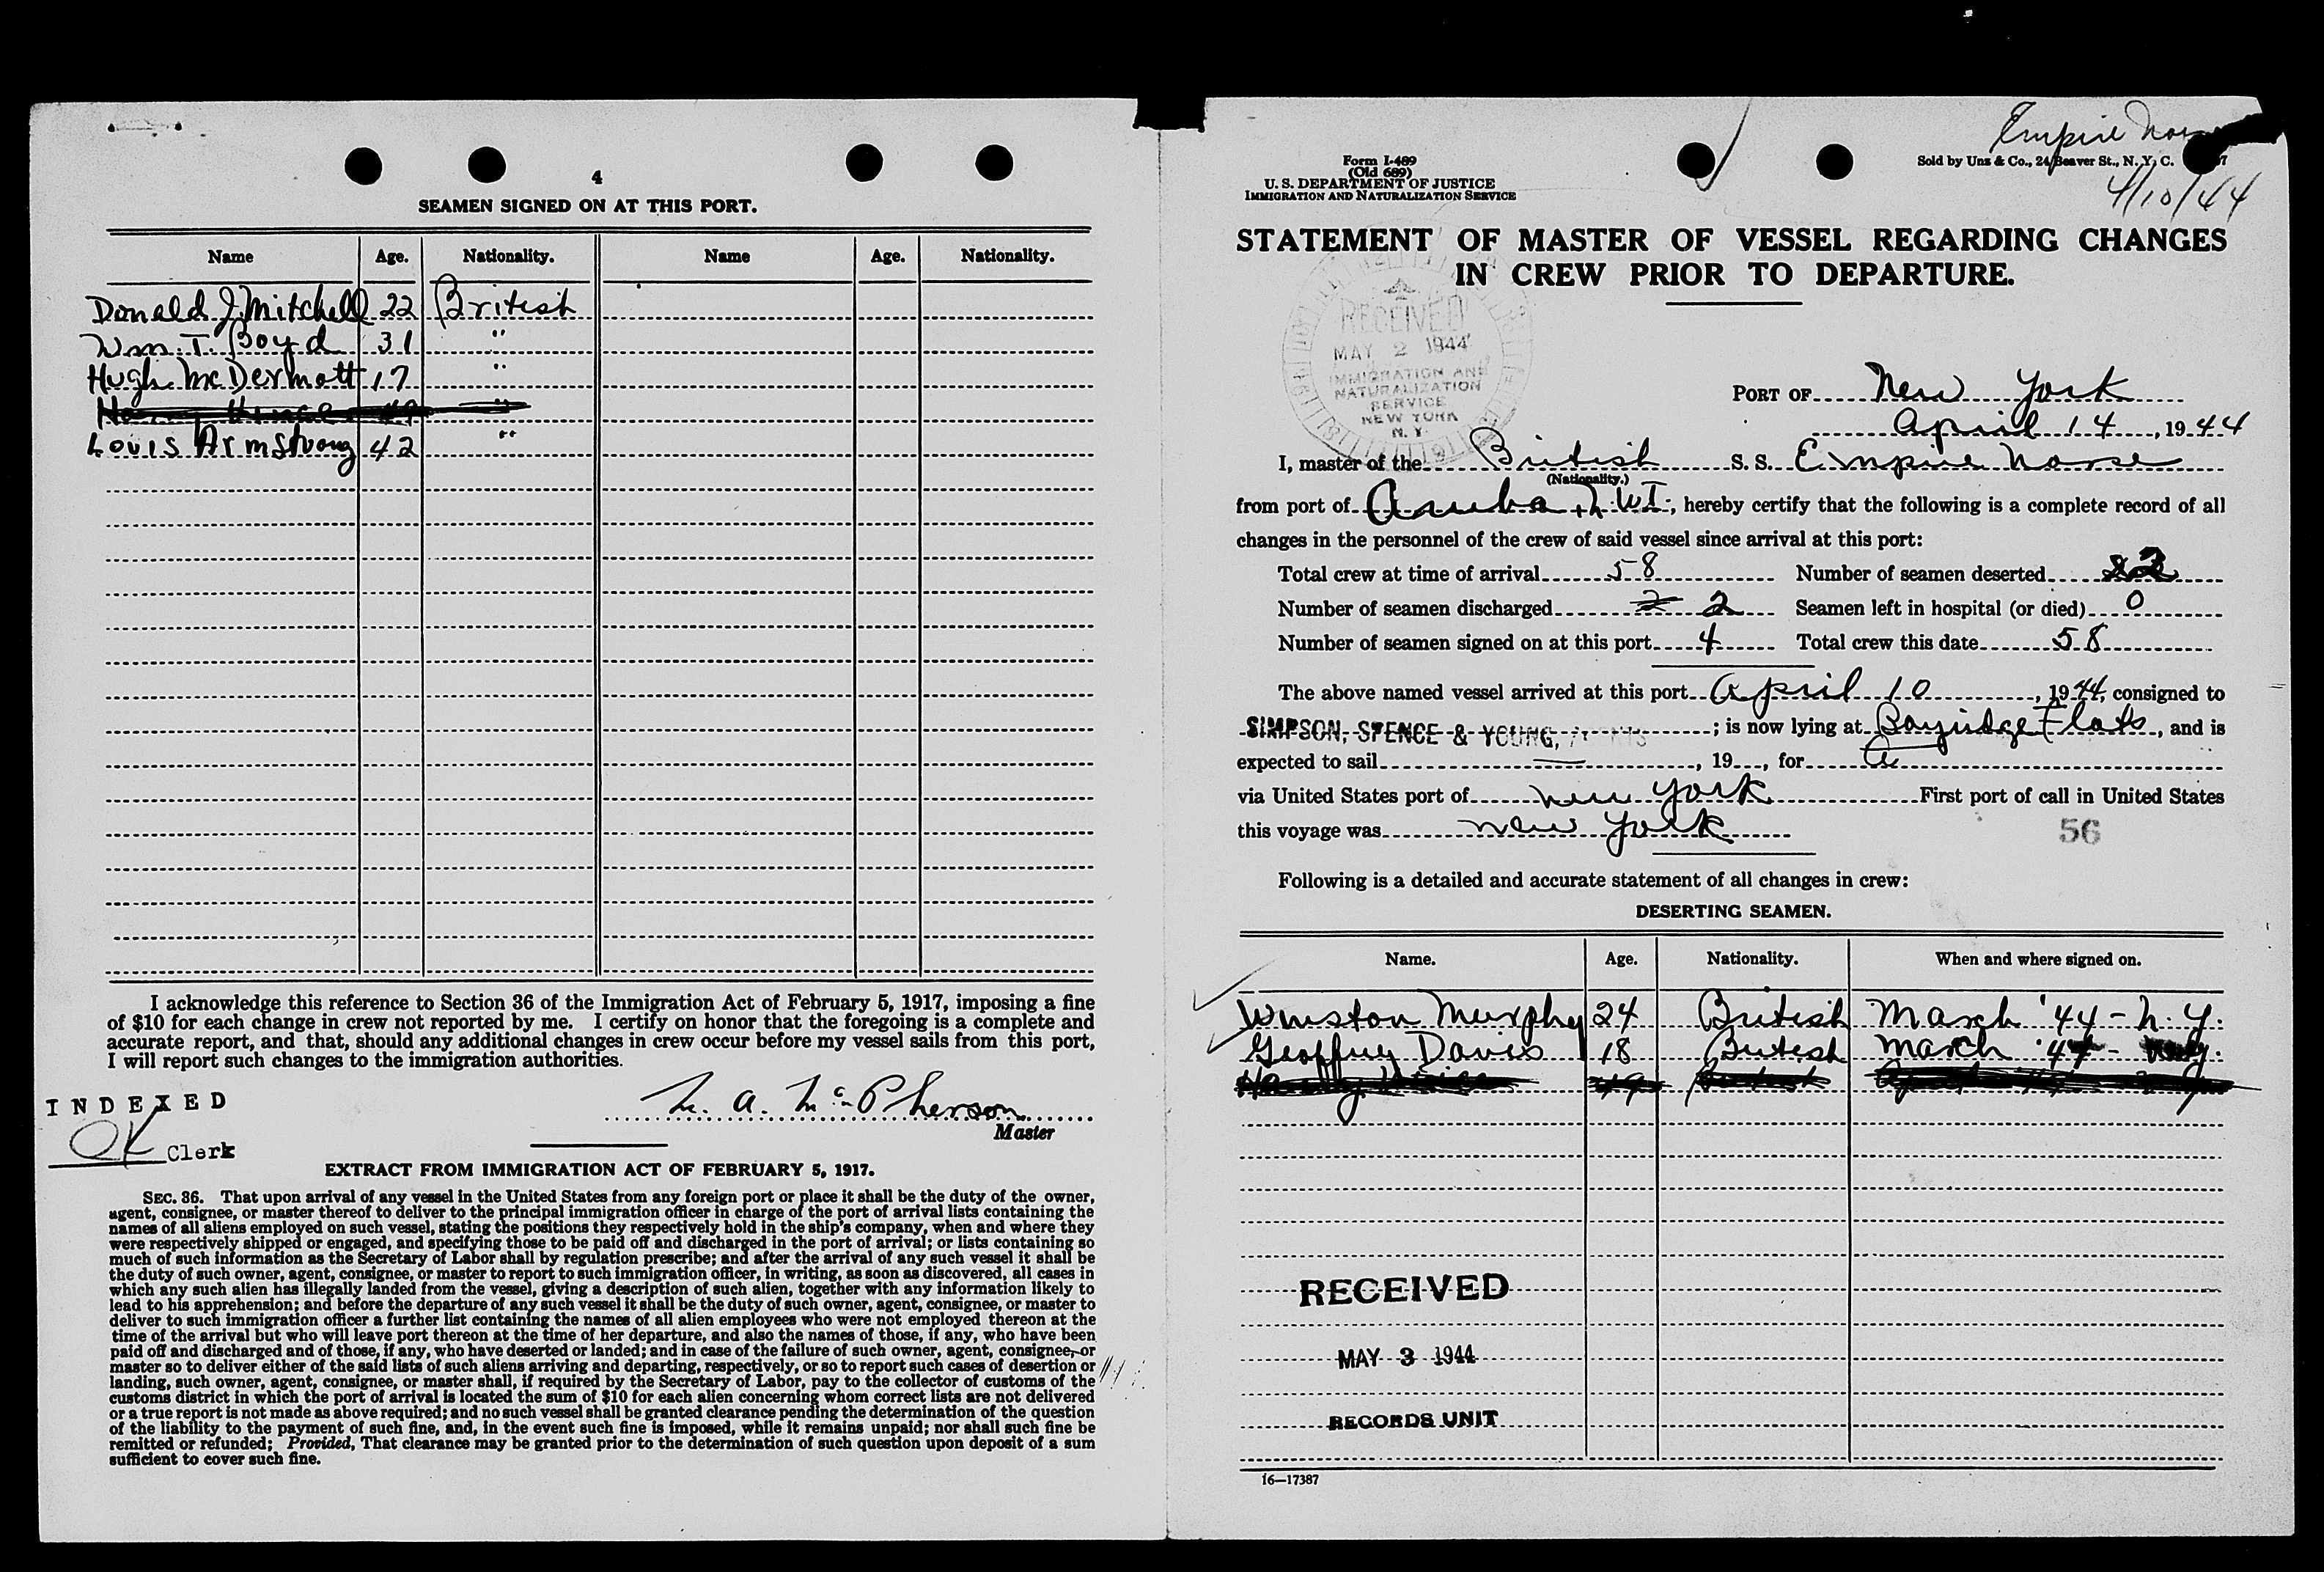 4
SEAMEN SIGNED ON AT THIS PORT.
Name Age. Nationality. Name Age. Nationality.
Donald J. Mitchell 22 British
Wm. T. Boyd 31 "
Hugh McDermott 17 "
49 "
Louis Armstrong 42 "
I acknowledge this reference to Section 36 of the Immigration Act of February 5, 1917, imposing a fine
of $10 for each change in crew not reported by me. I certify on honor that the foregoing is a complete and
accurate report, and that, should any additional changes in crew occur before my vessel sails from this port,
I will report such changes to the immigration authorities.
INDEXED
OK Clerk
A. McPherson
Master
EXTRACT FROM IMMIGRATION ACT OF FEBRUARY 5, 1917.
SEC. 36. That upon arrival of any vessel in the United States from any foreign port or place it shall be the duty of the owner,
agent, consignee, or master thereof to deliver to the principal immigration officer in charge of the port of arrival lists containing the
names of all aliens employed on such vessel, stating the positions they respectively hold in the ship's company, when and where they
were respectively shipped or engaged, and specifying those to be paid off and discharged in the port of arrival; or lists containing so
much of such information as the Secretary of Labor shall by regulation prescribe; and after the arrival of any such vessel it shall be
the duty of such owner, agent, consignee, or master to report to such immigration officer, in writing, as soon as discovered, all cases in
which any such alien has illegally landed from the vessel, giving a description of such alien, together with any information likely to
lead to his apprehension; and before the departure of any such vessel it shall be the duty of such owner, agent, consignee, or master to
deliver to such immigration officer a further list containing the names of all alien employees who were not employed thereon at the
time of the arrival but who will leave port thereon at the time of her departure, and also the names of those, if any, who have been
paid off and discharged and of those, if any, who have deserted or landed; and in case of the failure of such owner, agent, consignee, or
master so to deliver either of the said lists of such aliens arriving and departing, respectively, or so to report such cases of desertion or
landing, such owner, agent, consignee, or master shall, if required by the Secretary of Labor, pay to the collector of customs of the
customs district in which the port of arrival is located the sum of $10 for each alien concerning whom correct lists are not delivered
or a true report is not made as above required; and no such vessel shall be granted clearance pending the determination of the question
of the liability to the payment of such fine, and, in the event such fine is imposed, while it remains unpaid; nor shall such fine be
remitted or refunded; Provided, That clearance may be granted prior to the determination of such question upon deposit of a sum
sufficient to cover such fine.
Empire
Form I-489
(Old 689)
U. S. DEPARTMENT OF JUSTICE
IMMIGRATION AND NATURALIZATION SERVICE
Sold by Unz & Co., 24 Beaver St., N. Y. C.
4/10/44
STATEMENT OF MASTER OF VESSEL REGARDING CHANGES
IN CREW PRIOR TO DEPARTURE.
RECEIVED
MAY 2 1944
IMMIGRATION AND
NATURALIZATION
SERVICE
NEW YORK
N. Y.
PORT OF New York
April 14, 1944
I, master of the British S. S. Empire Norse
(Nationality.)
from port of Aruba N.W.I., hereby certify that the following is a complete record of all
changes in the personnel of the crew of said vessel since arrival at this port:
Total crew at time of arrival 58 Number of seamen deserted 2
Number of seamen discharged 2 2 Seamen left in hospital (or died) 0
Number of seamen signed on at this port 4 Total crew this date 58
The above named vessel arrived at this port April 10, 1944, consigned to
SIMPSON, SPENCE & YOUNG, ; is now lying at Bayridge Flats, and is
expected to sail — , 19 , for
via United States port of New York First port of call in United States
this voyage was New York
56
Following is a detailed and accurate statement of all changes in crew:
DESERTING SEAMEN.
Name. Age. Nationality. When and where signed on.
Winston Murphy 24 British March '44 - N.Y.
Geoffrey Davis 18 British March '44 -
49 British
RECEIVED
MAY 3 1944
RECORDS UNIT
16—17387